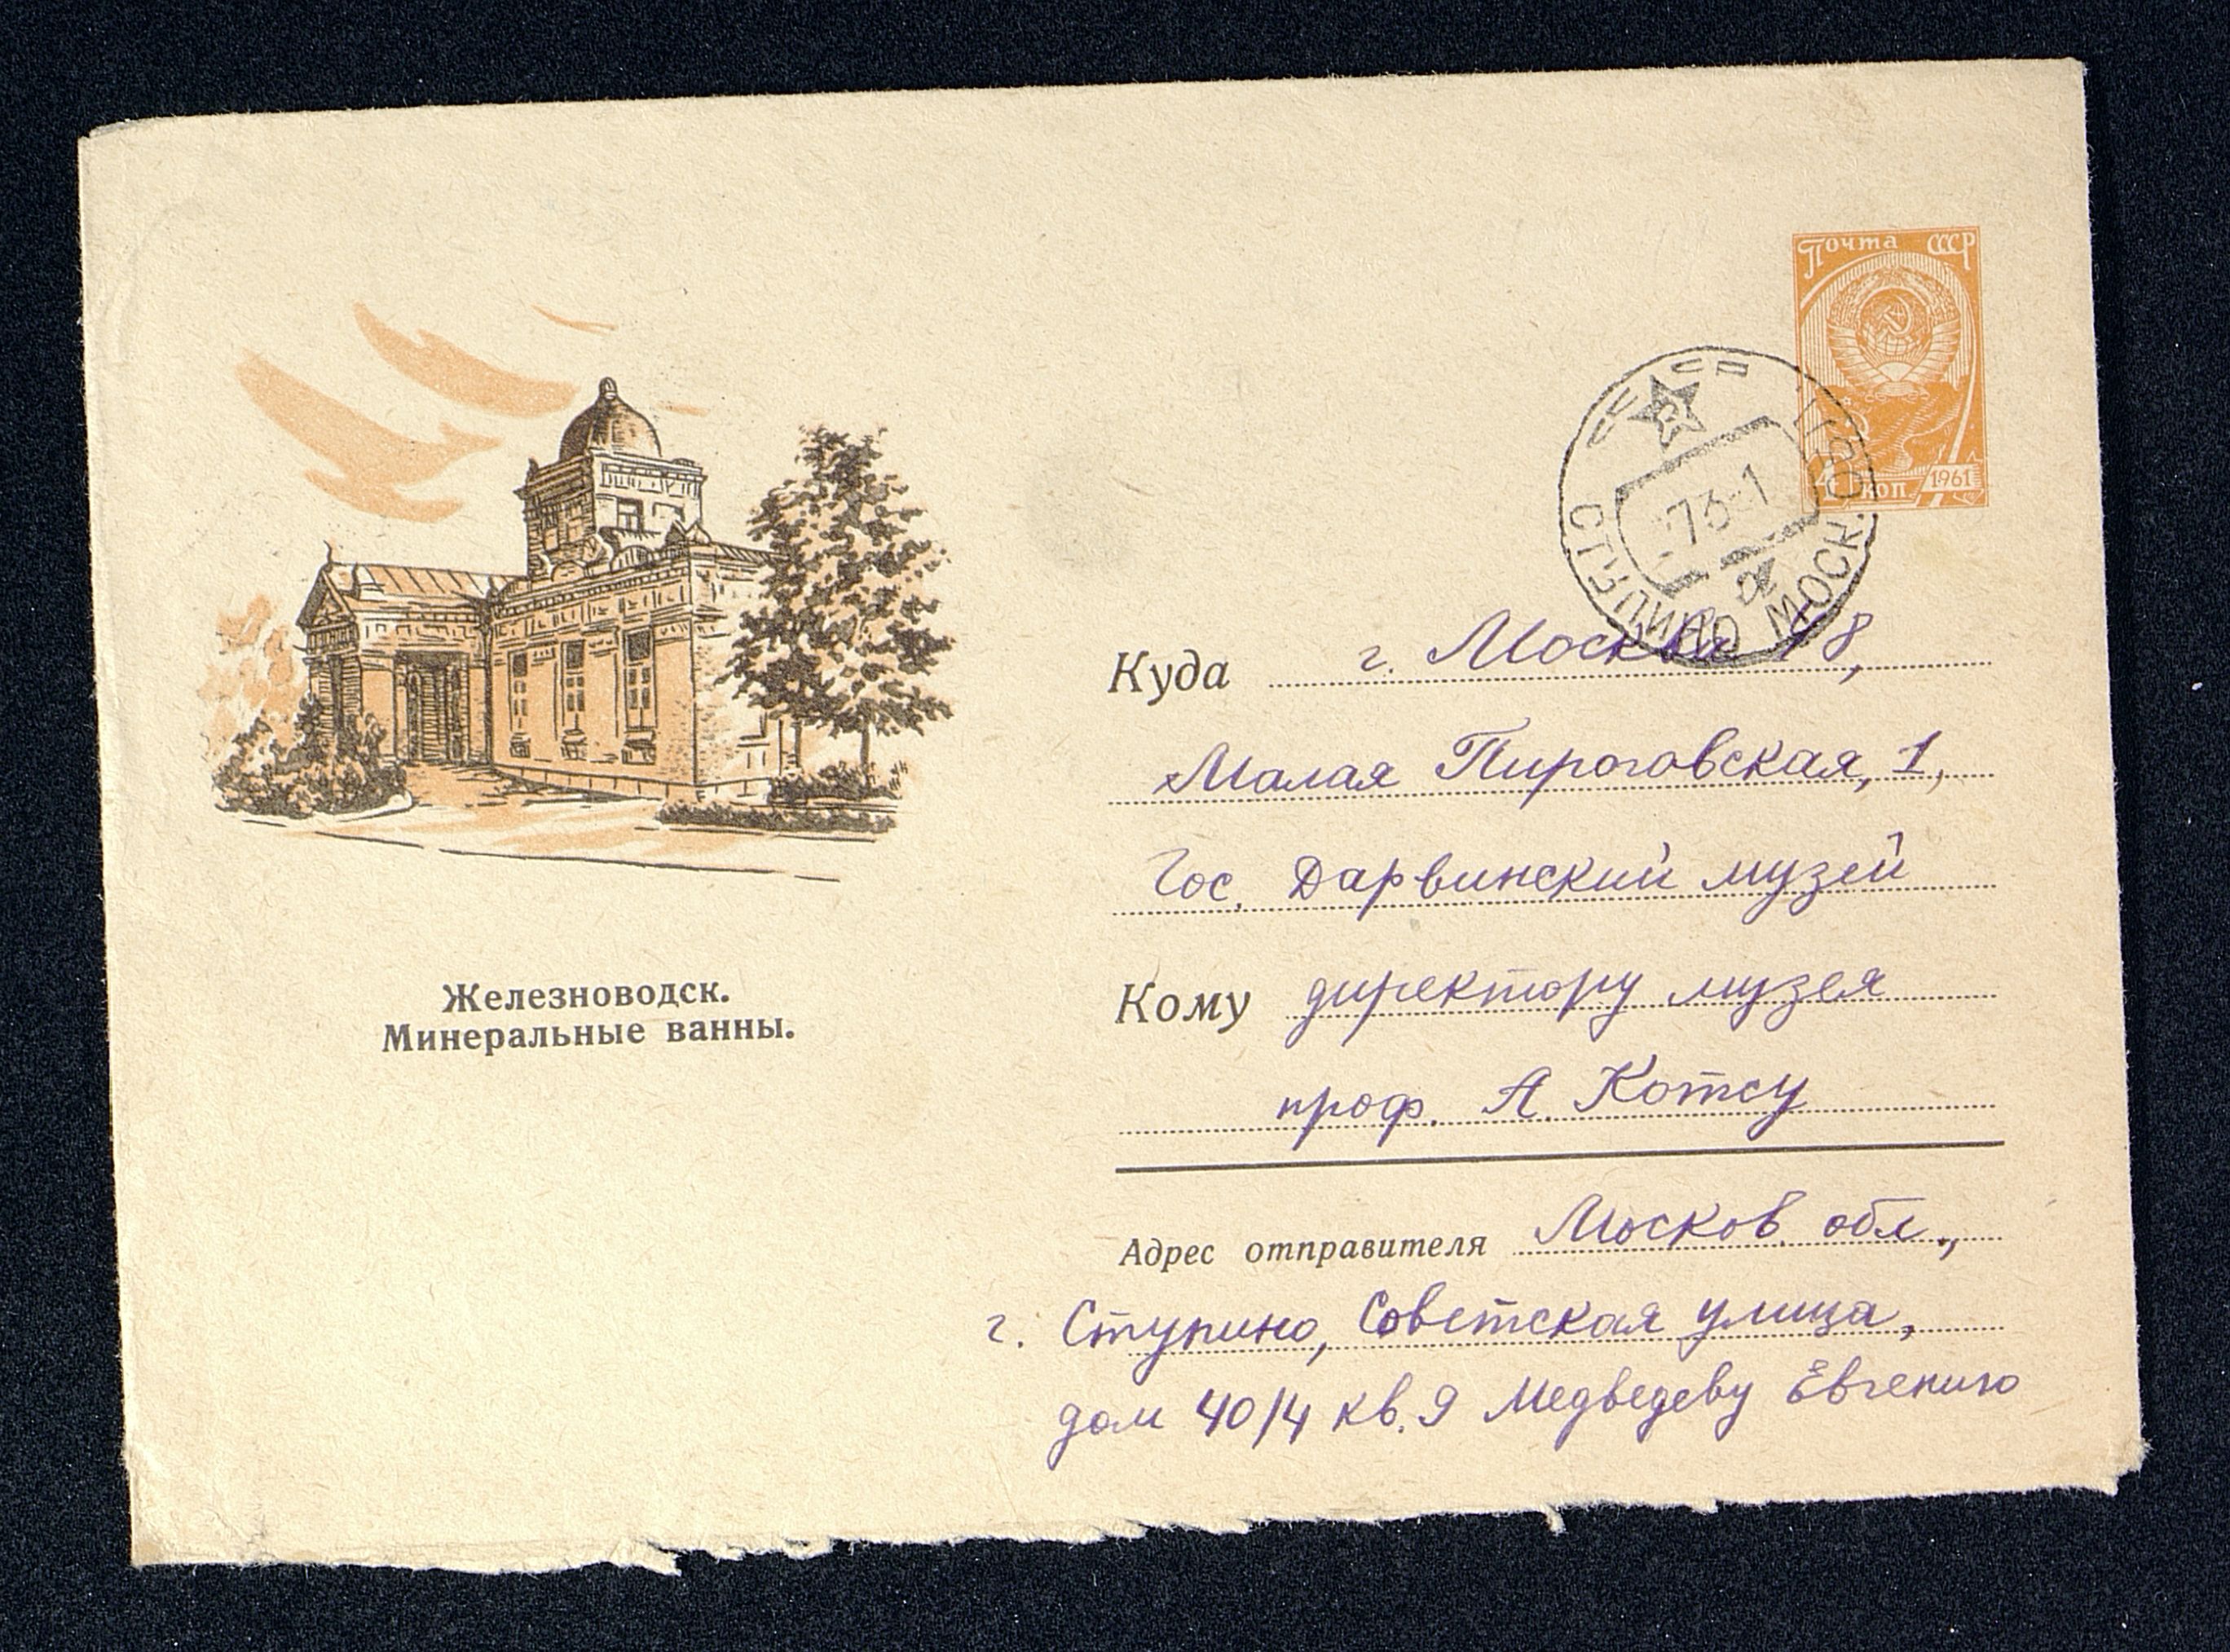 Почта СССР
коп 1961
СТУПИНО МОСК.
Куда г. Москва 48,
Малая Пироговская, 1,
Гос. Дарвинский музей
Железноводск.
Минеральные ванны.
Кому директору музея
проф. А. Котсу
Адрес отправителя Москов. обл.,
г. Ступино, Советская улица,
дом 40/4 кв. 9 Медведеву Евгению